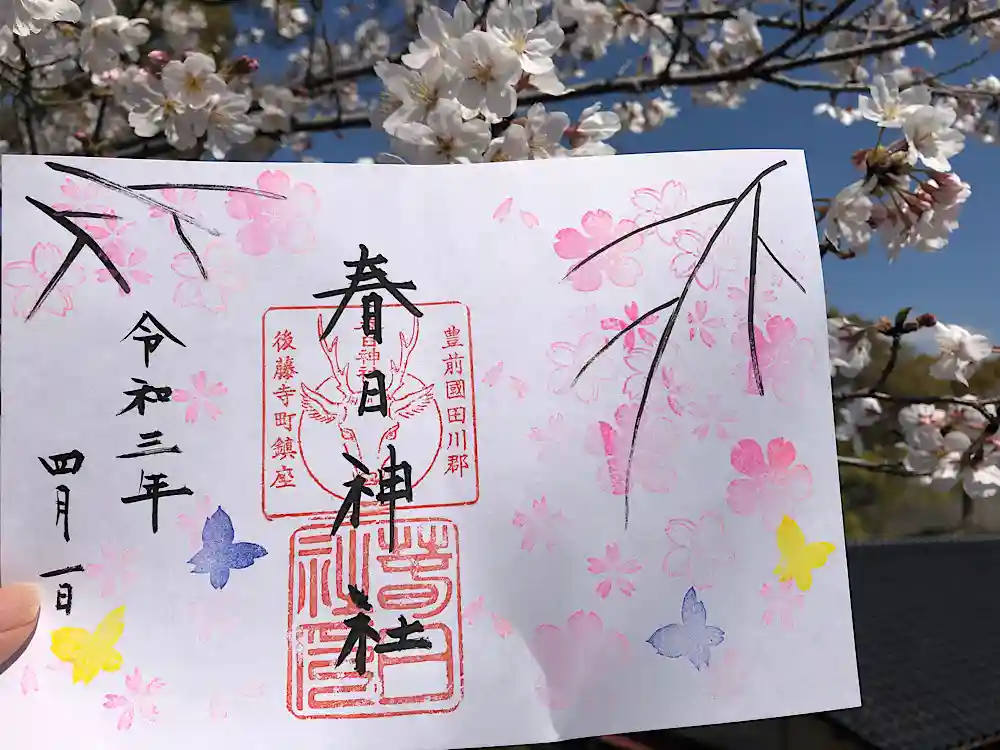 春日神社
豊前國田川郡
春日神社
後藤寺町鎮座
令和三年
四月一日